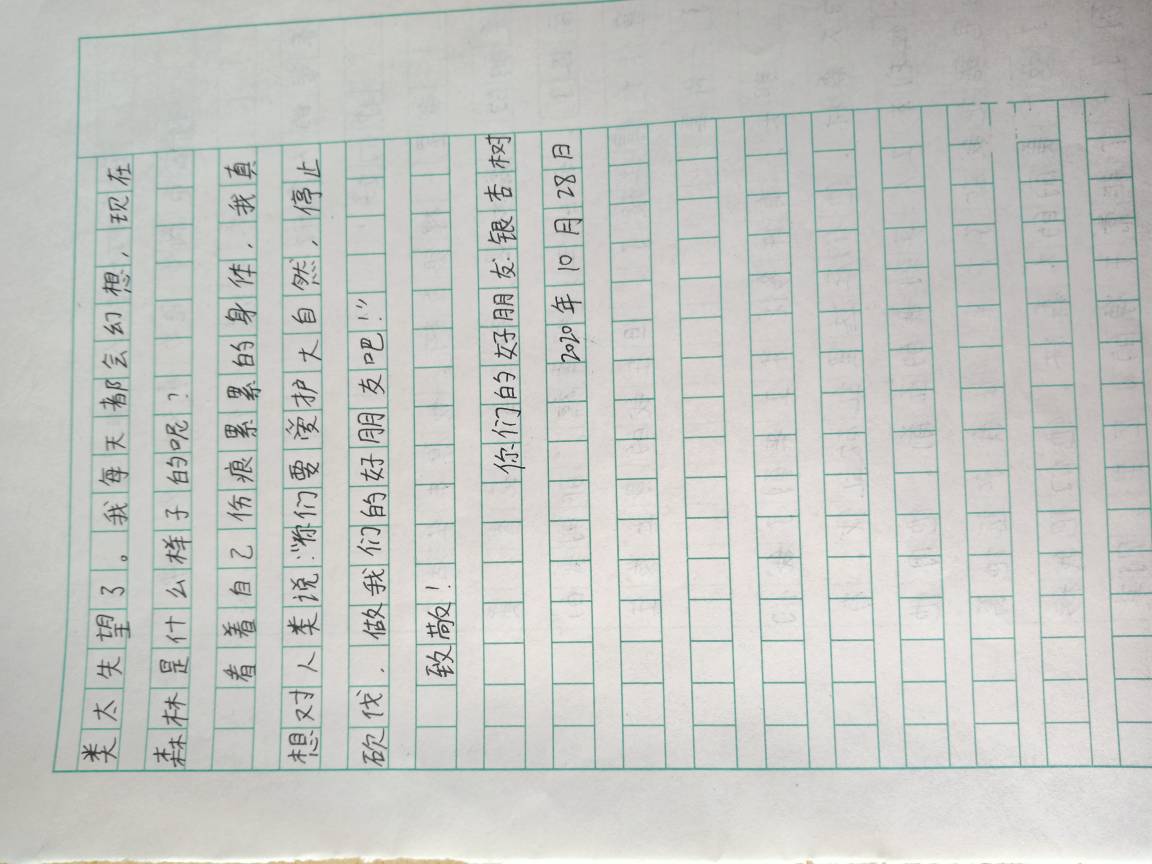 类太失望了。我每天都会幻想，现在
森林是什么样子的呢？
看着自己伤痕累累的身体，我真
想对人类说：“你们要爱护大自然，停止
砍伐，做我们的好朋友吧！”
致敬！
你们的好朋友：银杏树
2020年10月28日